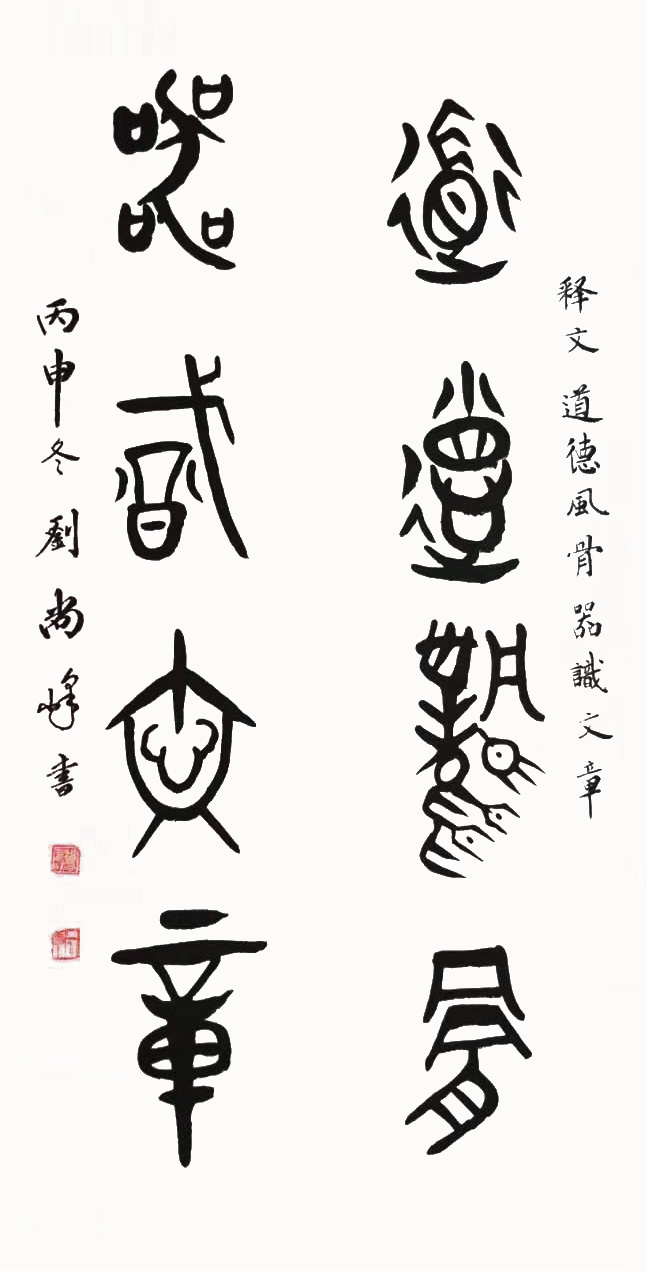 释文 道德風骨器識文章
道德風骨
器識文章
丙申冬劉尚峰書